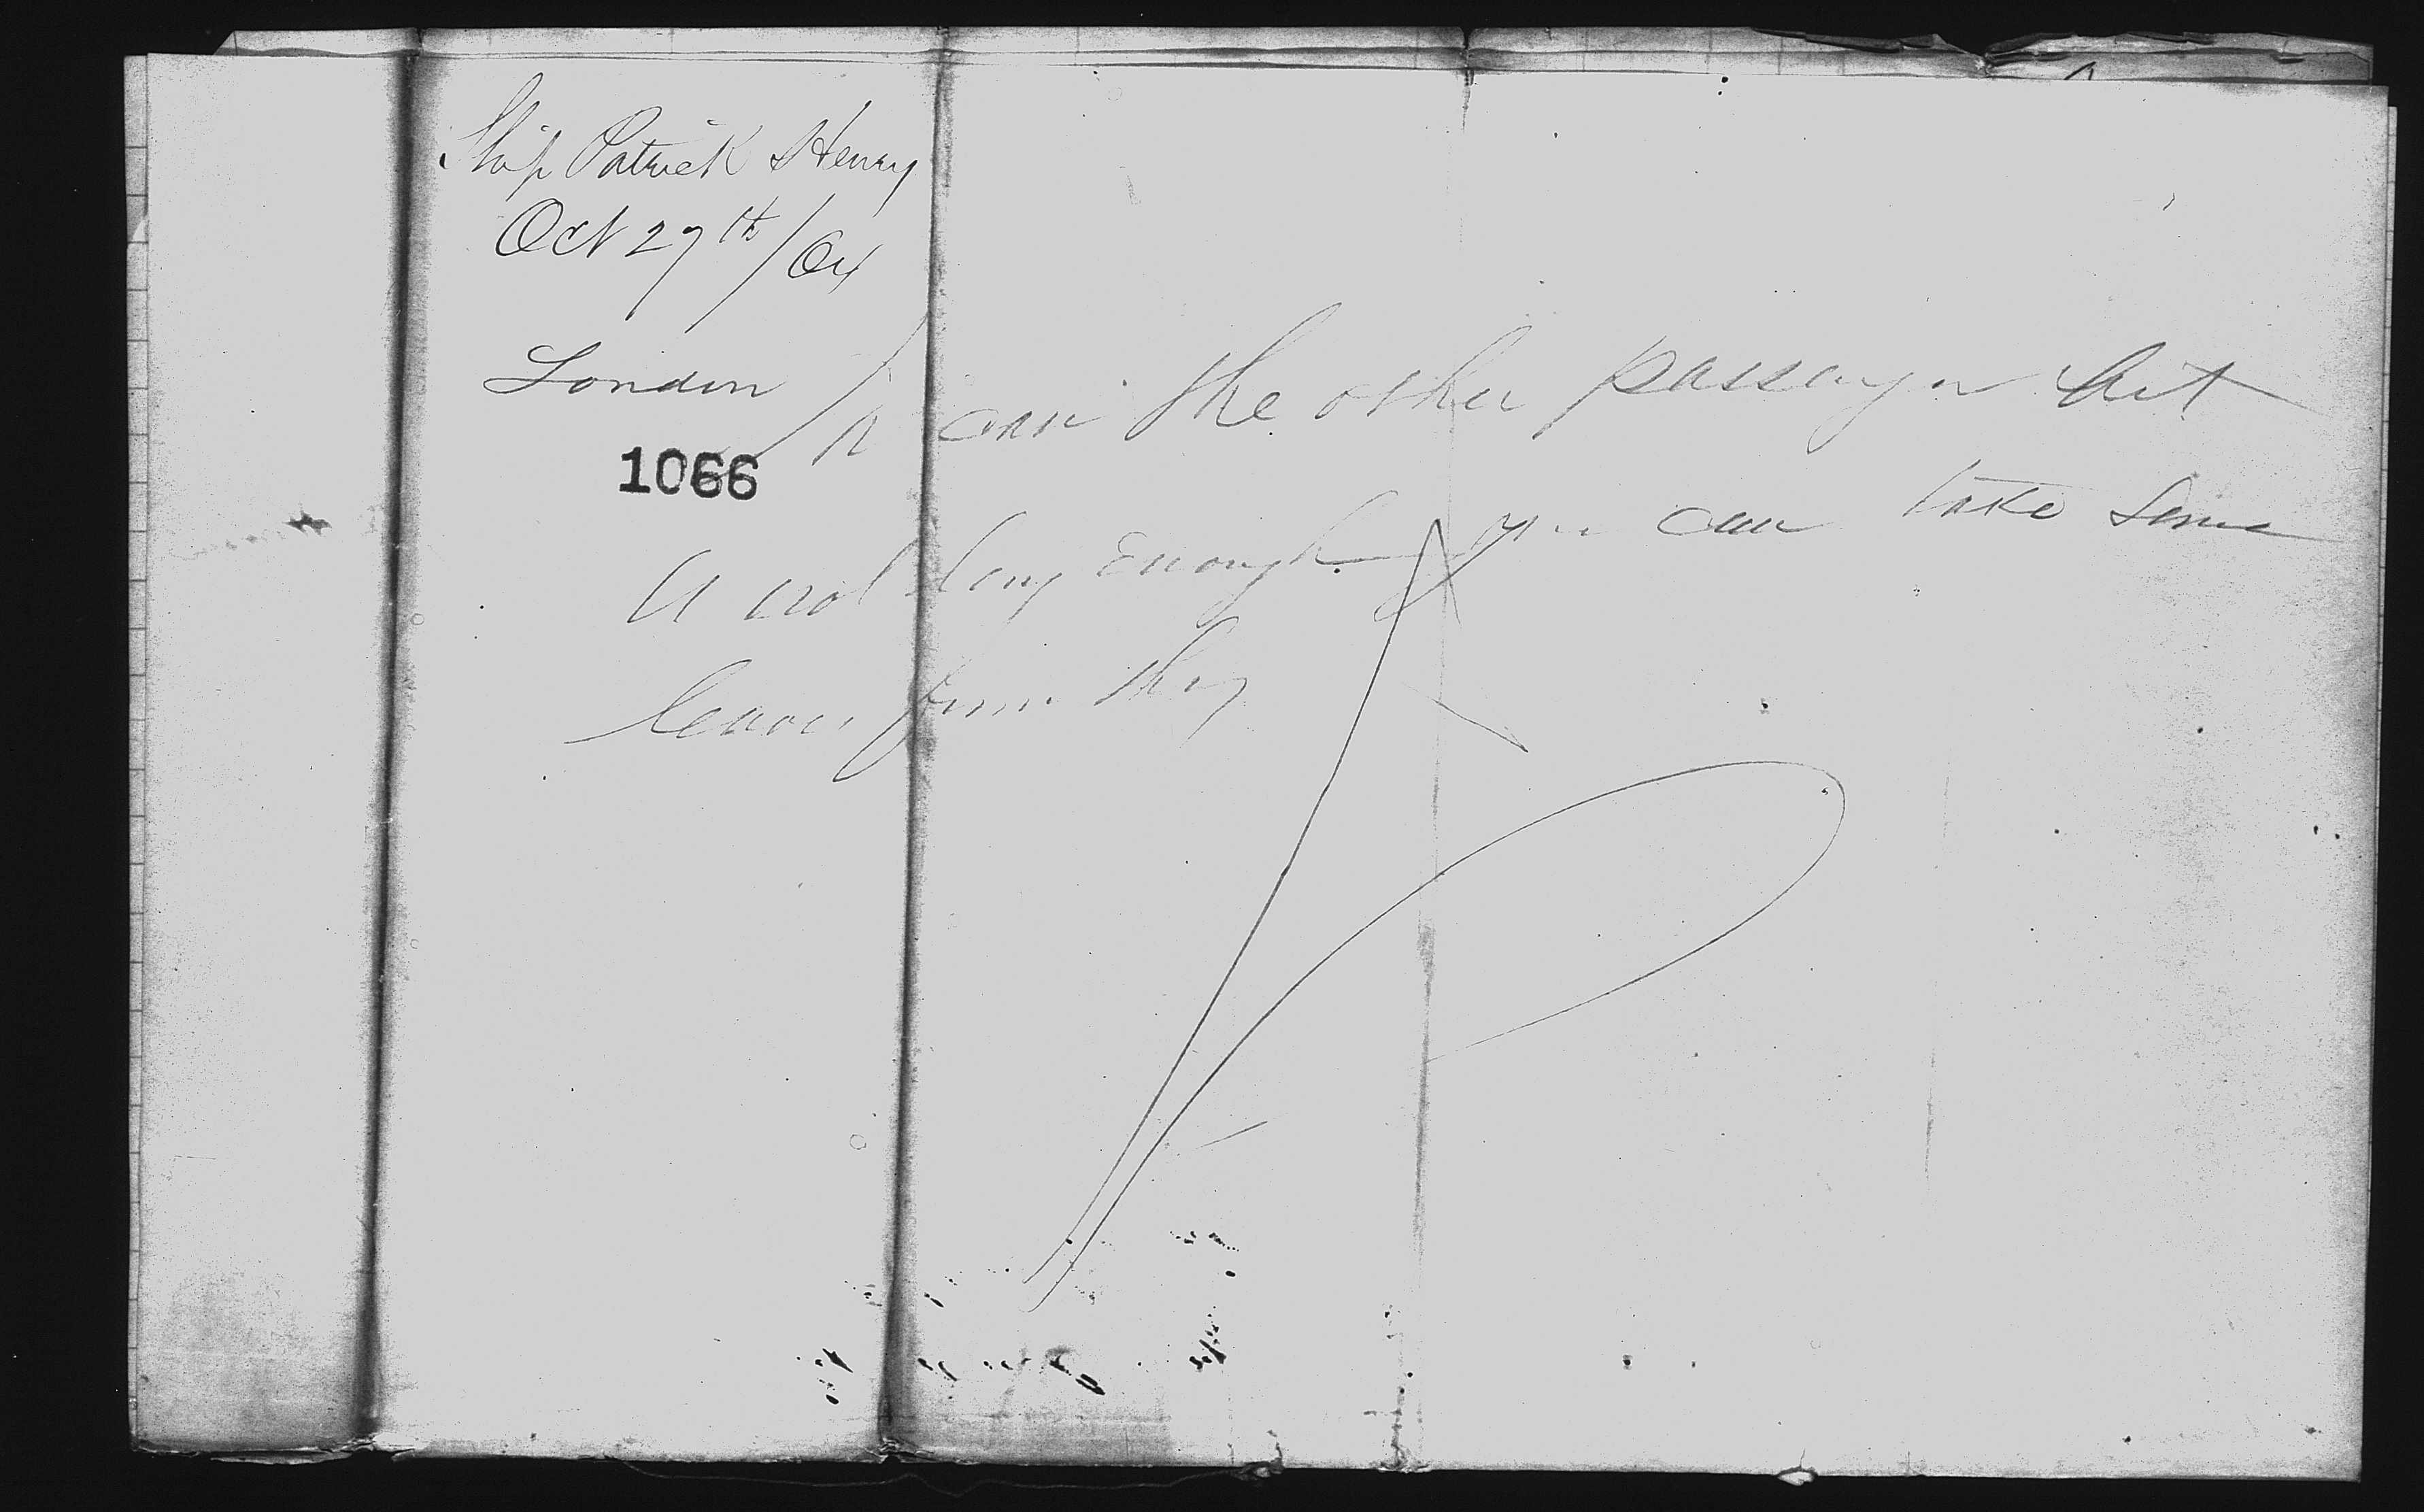 Ship Patrick Henry
Oct 27th/64
London
1066
In case the other passenger list
is not long enough you can take some
leaves from this